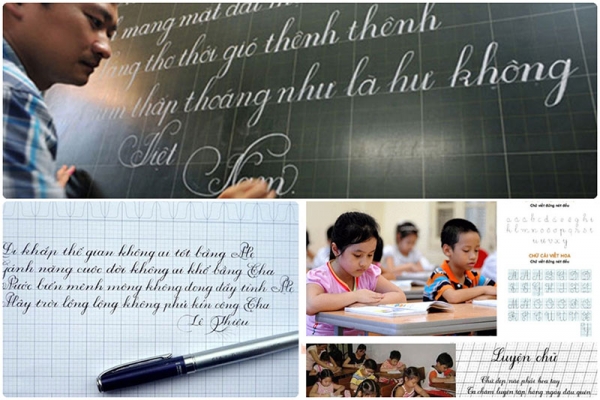 mang mất
thơ thời gió thênh thênh
thấp thoáng như là hư không
Việt
Nam.
Đi khắp thế gian không ai tốt bằng Mẹ
Gánh nặng cuộc đời không ai khổ bằng Cha
Nước biển mênh mông không đong đầy tình Mẹ
Mây trời lồng lộng không phủ kín công Cha
Lê Thiệu
Chữ viết đứng nét đều
CHỮ CÁI VIẾT HOA
Chữ viết đứng nét đều
Luyện chữ
Chữ đẹp nào phải hoa tay
Ta chăm luyện tập hàng ngày đâu quên